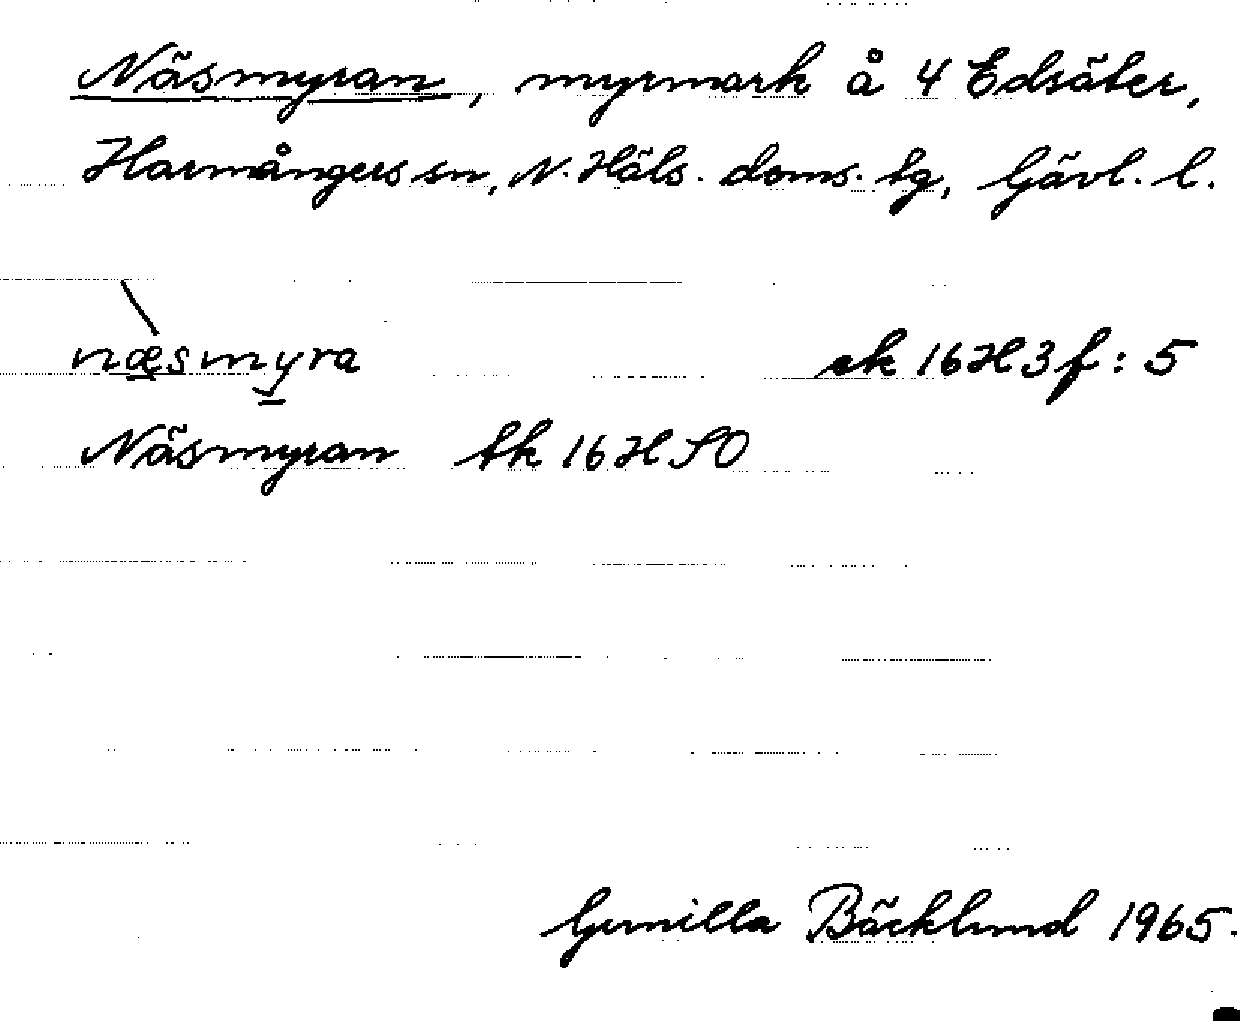 Näsmyran, myrmark å 4 Edsäter,
Harmångers sn, N. Häls. doms. tg, Gävl. l.
næsmyra ek 16H3f:5
Näsmyran tk 16H SO
Gunilla Bäcklund 1965.